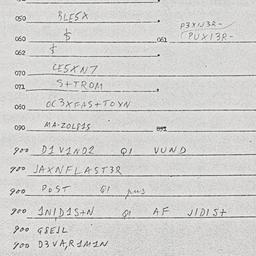 050 BLE5X
P3XIN3R-
060 $ 061 PUX13R-
062 $
070 CE5XN7
071 S+TROM
080 OC3XFAS+TOXN
090 MA-ZOL815 091
900 D1V1ND2 Q1 VUND
900 JAXNFLAST3R
900 POST Q1 pus
900 1N1D1S+N Q1 AF J1D1S+
900 G8E1L
900 D3VA,R1M1N